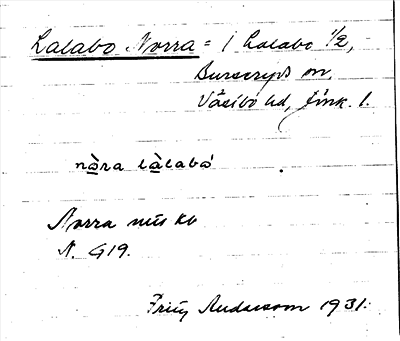 Lalabo Norra = 1 Lalabo 1/2,
Burseryds sn,
Västbo hd, Jönk. l.
nàra làlabó
Norra mus kb
N. G19.
Fritz Andersson 1931.